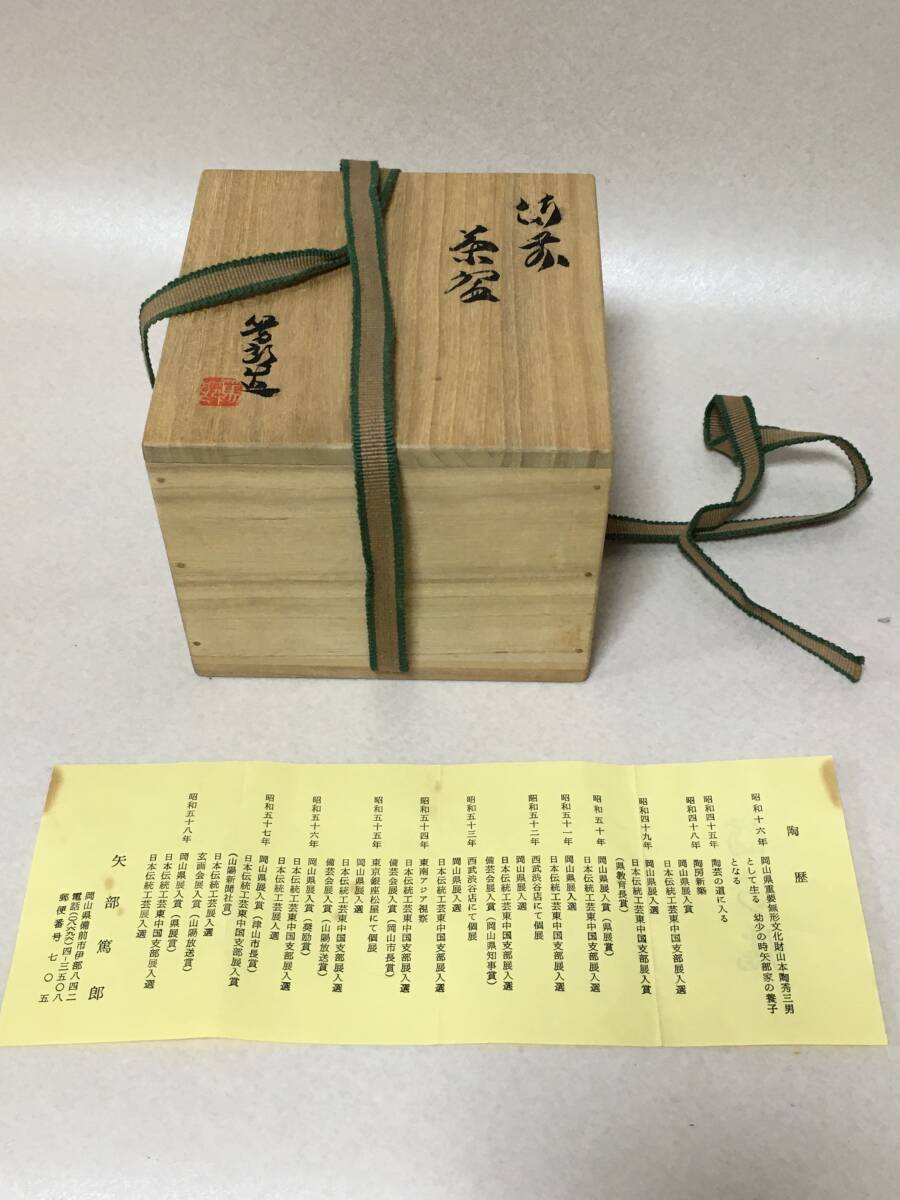 備前
茶盌
篤郎造
陶歴
昭和十六年 岡山県重要無形文化財山本陶秀三男
として生る 幼少の時矢部家の養子
となる
昭和四十五年 陶芸の道に入る
昭和四十八年 陶房新築
岡山県展入賞
日本伝統工芸東中国支部展入選
昭和四十九年 岡山県展入選
日本伝統工芸東中国支部展入賞
(県教育長賞)
昭和五十年 岡山県展入賞(県展賞)
日本伝統工芸東中国支部展入選
昭和五十一年 岡山県展入選
日本伝統工芸東中国支部展入選
昭和五十二年 西武渋谷店にて個展
岡山県展入選
日本伝統工芸東中国支部展入選
備芸会展入賞(岡山県知事賞)
昭和五十三年 西武渋谷店にて個展
岡山県展入選
日本伝統工芸東中国支部展入選
昭和五十四年 東南アジア視察
日本伝統工芸東中国支部展入選
備芸会展入賞(岡山市長賞)
昭和五十五年 東京銀座松屋にて個展
岡山県展入選
日本伝統工芸東中国支部展入選
備芸会展入賞(山陽放送賞)
昭和五十六年 岡山県展入賞(奨励賞)
日本伝統工芸東中国支部展入選
日本伝統工芸展入選
昭和五十七年 岡山県展入賞(津山市長賞)
日本伝統工芸東中国支部展入賞
(山陽新聞社賞)
日本伝統工芸展入選
玄画会展入賞(山陽放送賞)
昭和五十八年 岡山県展入賞(県展賞)
日本伝統工芸東中国支部展入選
日本伝統工芸展入選
矢部篤郎
岡山県備前市伊部八四二
電話(〇八六九)六四-三五〇八
郵便番号 七〇五